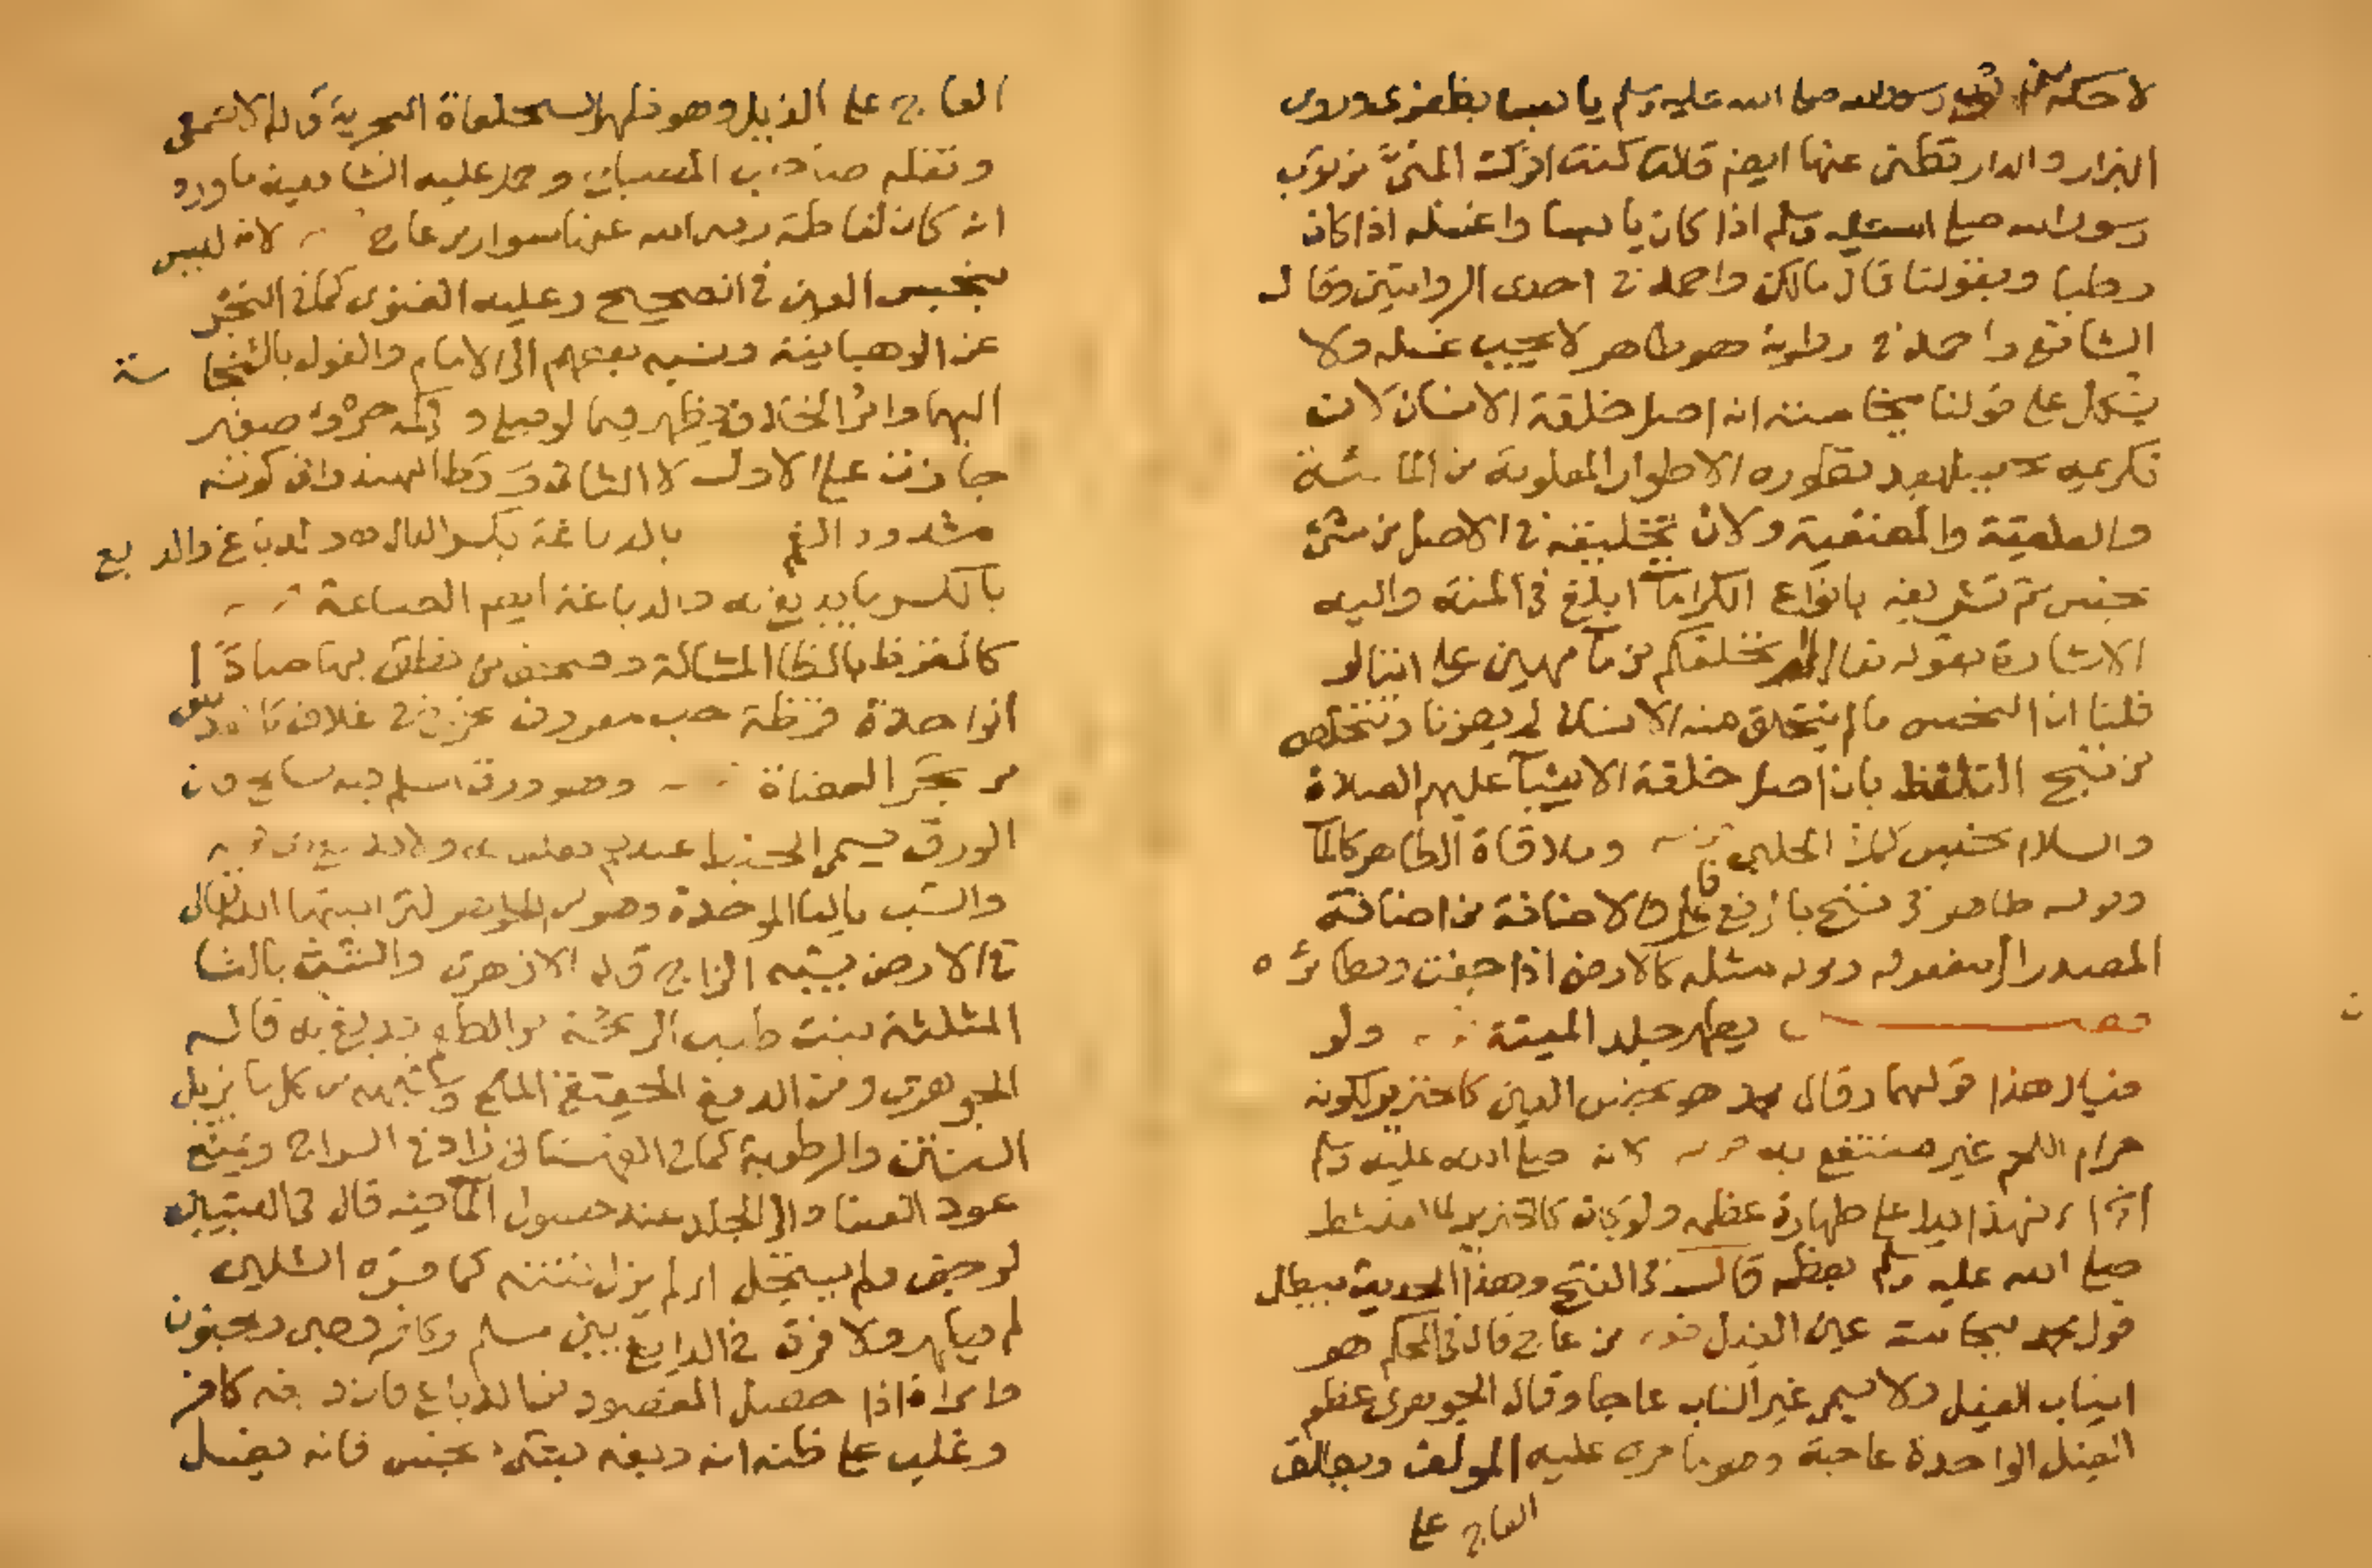 لاحكه من ثوب رسول الله صلى الله عليه وسلم يابسا بظفري وروى
البزار والدارقطني عنها ايضا قالت كنت افركه المني من ثوب
رسول الله صلى الله عليه وسلم اذا كان يابسا واغسله اذا كان
رطبا وبقولنا قال مالك واحمد في احدى الروايتين وقال
الشافعي واحمد في رواية هو طاهر لا يجب غسله ولا
يشكل على قولنا بنجاسته انه اصل خلقة الانسان لان
تكريمه يحصل بعد تطوره الاطوار المعلومة من المائية
والعلقية والمضغية ولان تخليقه في الاصل من شئ
نجس ثم تشريفه بانواع الكرامات ابلغ في المنة واليه
الاشارة بقوله تعالى الم نخلقكم من ماء مهين على اننا لو
قلنا ان النجس ما لم يتخلق منه الانسان لم يضرنا ونتخلص
من قبح التلفظ بان اصل خلقة الانبياء عليهم الصلاة
والسلام نجس كما في الحلبي وملاقاة الطاهر كالماء
وقوله طاهر في نسخ بالرفع فاعل فالاضافة من اضافة
المصدر الى مفعوله وقوله مثله كالارض اذا جفت ونظائره
فصل يطهر جلد الميتة ولو
فيلا هذا قولهما وقال محمد هو نجس العين كالخنزير لكونه
حرام اللحم غير منتفع به لانه صلى الله عليه وسلم
الخ فهذا يدل على طهارة عظمه ولو كان كالخنزير لما امتشط
صلى الله عليه وسلم بعظمه قال في الفتح وهذا الحديث يبطل
قول محمد بنجاسة عين الفيل قوله من عاج قال في المحكم هو
انياب الفيل ولا يسمى غير الناب عاجا وقال الجوهري عظم
الفيل الواحدة عاجة وهو ما جرى عليه المؤلف ويطلق
العاج على
العاج على الذبل وهو ظهر السلحفاة البحرية قاله الاصمعي
ونقله صاحب المصباح وحمل عليه الشافعية ما ورد
انه كان لفاطمة رضي الله عنها سوار من عاج لانه ليس
بنجس العين في الصحيح وعليه الفتوى كما في البحر
عن الوهبانية ونسبه بعضهم الى الامام والقول بالنجاسة
اليهما واثر الخلاف يظهر فيما لو صلى و في كمه جرو صغير
جازت على الاول لا الثاني وشرط الهندواني كونه
مشدود الفم بالدباغة بكسر الدال هو الدباغ والدبغ
بالكسر ما يدبغ به والدباغة ايضا الصناعة
كالقرظ بالظاء المشالة وصحف من نطق بها ضادا
الواحدة قرظة حب معروف يخرج في غلاف كالعدس
من شجر العضاة وهو ورق السلم
الورق يسمى الخبط
والشب بالباء الموحدة وهو من الجواهر التي انبتها الله تعالى
في الارض يشبه الزاج قاله الازهري والشث بالثاء
المثلثة نبت طيب الرائحة مر الطعم يدبغ به قاله
الجوهري ومن الدبغ الحقيقي الملح وشبهه من كل ما يزيل
النتن والرطوبة كما في القهستاني زاد في السراج ويمنع
عود الفساد الى الجلد عند حصول الماء فيه قال في التبيين
لو جف ولم يستحل اي لم يزل نتنه كما فسره الشلبي
لم يطهر ولا فرق في الدابغ بين مسلم وكافر وصبي ومجنون
وامراة اذا حصل المقصود من الدباغ فان دبغه كافر
وغلب على ظنه انه دبغه بشئ نجس فانه يغسل